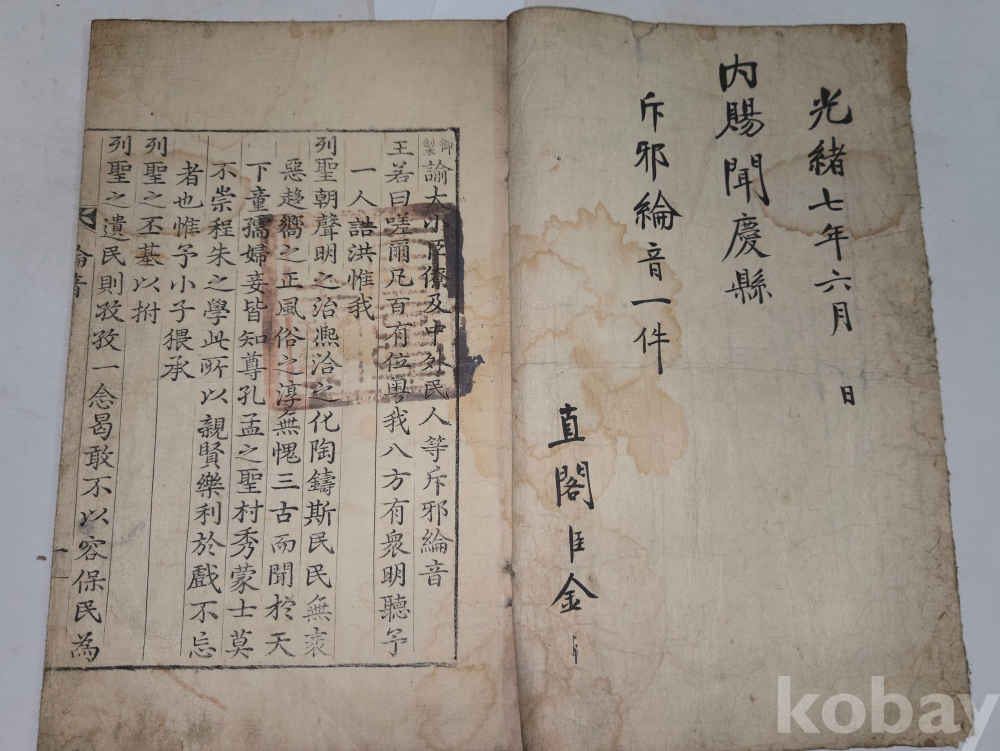 光緒七年六月 日
內賜聞慶縣
斥邪綸音一件
直閣臣金
御製諭大小臣僚及中外民人等斥邪綸音
王若曰嗟爾凡百有位粤我八方有衆明聽予
一人誥洪惟我
列聖朝聲明之治熈洽之化陶鑄斯民民無衺
惡趍嚮之正風俗之淳無愧三古而聞於天
下童孺婦妾皆知尊孔孟之聖村秀蒙士莫
不崇程朱之學此所以親賢樂利於戲不忘
者也惟予小子猥承
列聖之丕基以拊
列聖之遺民則孜孜一念曷敢不以容保民為
綸音
一
kobay